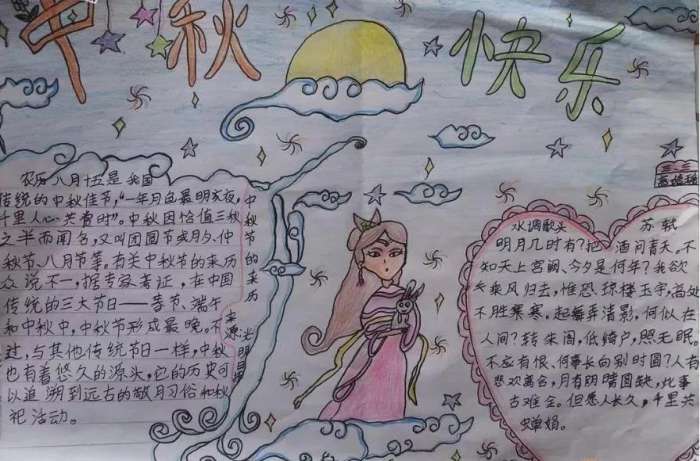 中秋快乐
农历八月十五是我国
传统的中秋佳节,“一年月色最明夜,
千里人心共赏时”。中秋因恰值三秋
之半而闻名,又叫团圆节或月夕、仲
秋节、八月节等。有关中秋节的来历
众说不一,据专家考证,在中国
传统的三大节日——春节、端午
和中秋中,中秋节形成最晚。不
过,与其他传统节日一样,中秋
也有着悠久的源头,它的历史可
以追溯到远古的敬月习俗和秋
祀活动。
中秋节的来历
来源
光明日报
三二
水调歌头 苏轼
明月几时有?把酒问青天。不
知天上宫阙、今夕是何年?我欲
乘风归去,惟恐琼楼玉宇,高处
不胜寒寒,起舞弄清影,何似在
人间?转朱阁,低绮户,照无眠。
不应有恨、何事长向别时圆?人有
悲欢离合,月有阴晴圆缺,此事
古难全。但愿人长久,千里共
蝉娟。